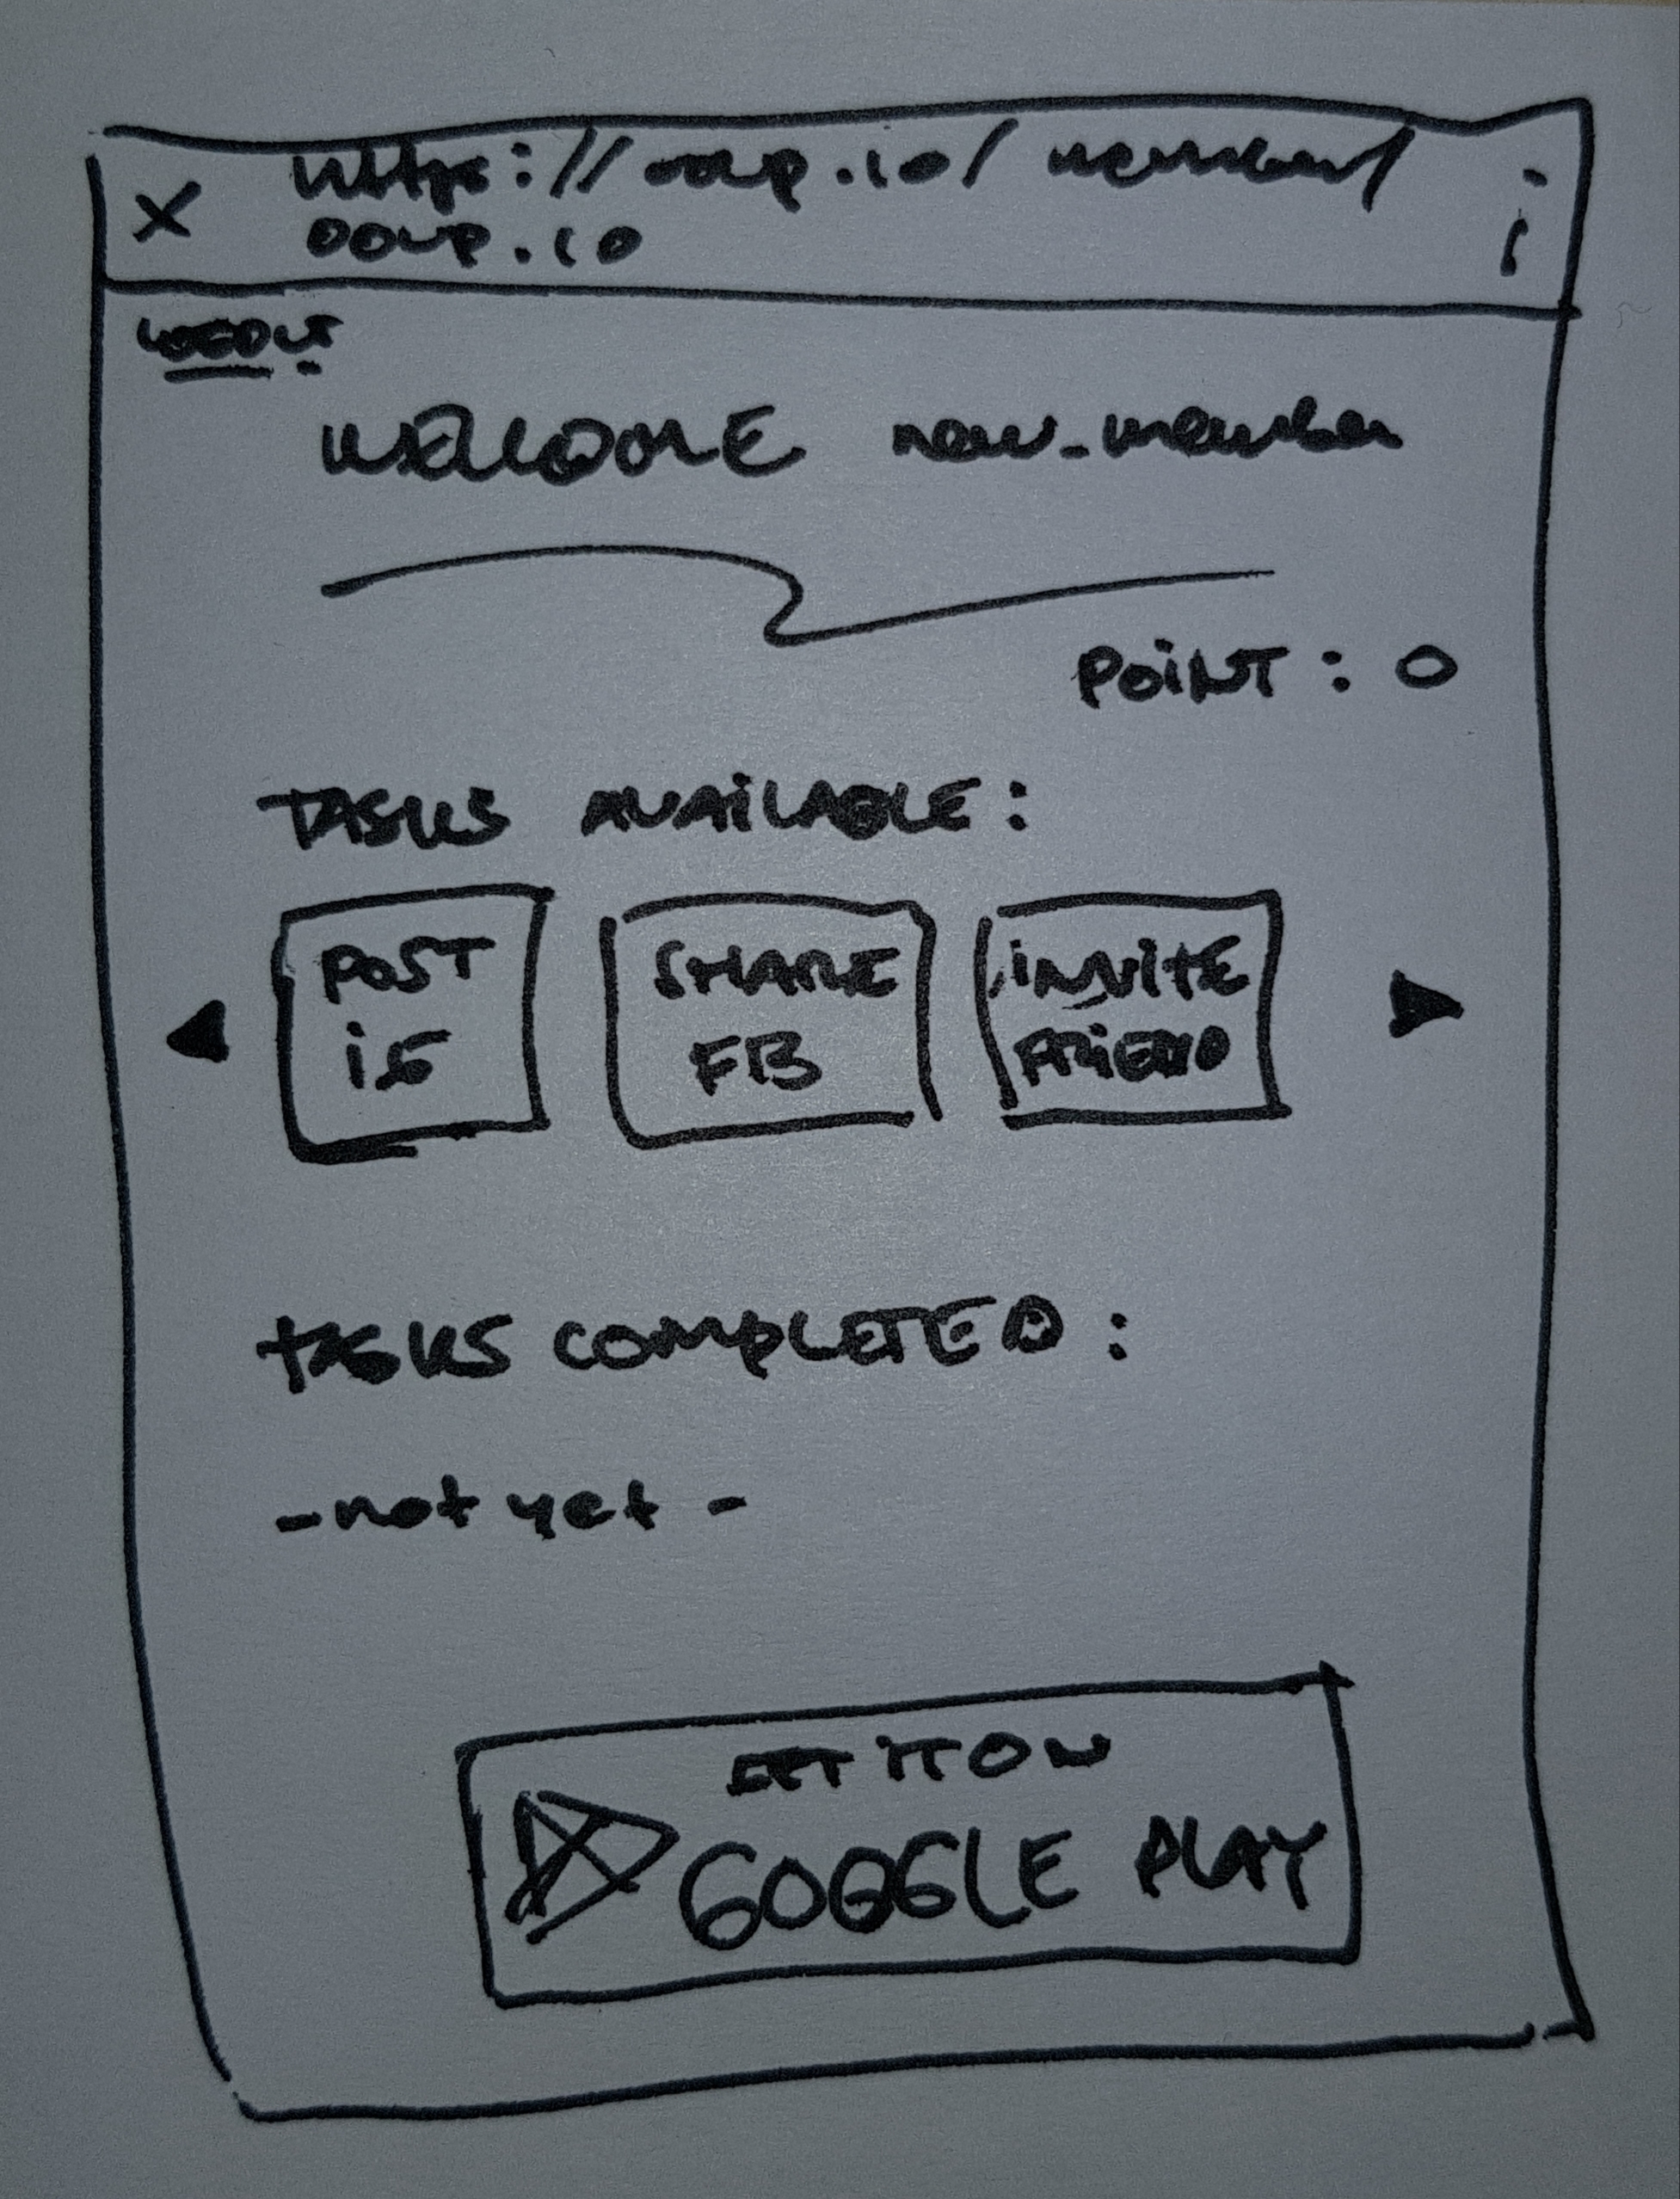 X https://ooup.io/member/
ooup.io
LOGOUT
WELCOME new_member
POINT : 0
TASKS AVAILABLE :
POST
IG
SHARE
FB
INVITE
FRIEND
TASKS COMPLETED :
- not yet -
GET IT ON
GOOGLE PLAY